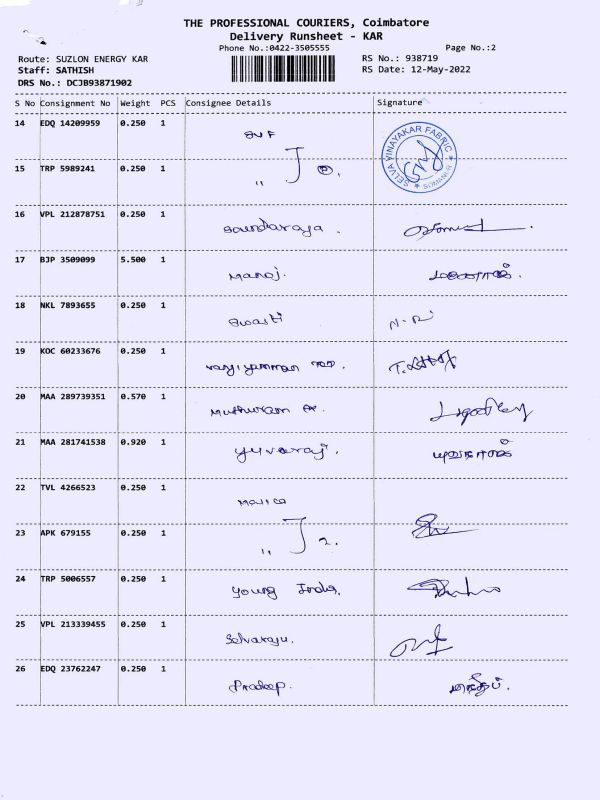 THE PROFESSIONAL COURIERS, Coimbatore
Delivery Runsheet - KAR
Phone No.:0422-3505555 Page No.:2
Route: SUZLON ENERGY KAR RS No.: 938719
Staff: SATHISH RS Date: 12-May-2022
DRS No.: DCJB93871902
S No Consignment No Weight PCS Consignee Details Signature
14 EDQ 14209959 0.250 1 SVF
SELVA VINAYAKAR FABRIC SOMANUR
15 TRP 5989241 0.250 1 " 2
16 VPL 212878751 0.250 1 Soundaraja.
17 BJP 3509099 5.500 1 Manoj. மனோஜ்.
18 NKL 7893655 0.250 1 Swasti N.R
19 KOC 60233676 0.250 1
20 MAA 289739351 0.570 1 Muthuram
21 MAA 281741538 0.920 1 Yuvaraj. யுவராஜ்
22 TVL 4266523 0.250 1
23 APK 679155 0.250 1 " 2.
24 TRP 5006557 0.250 1 Young India.
25 VPL 213339455 0.250 1 Selvaraju.
26 EDQ 23762247 0.250 1 Pradeep.